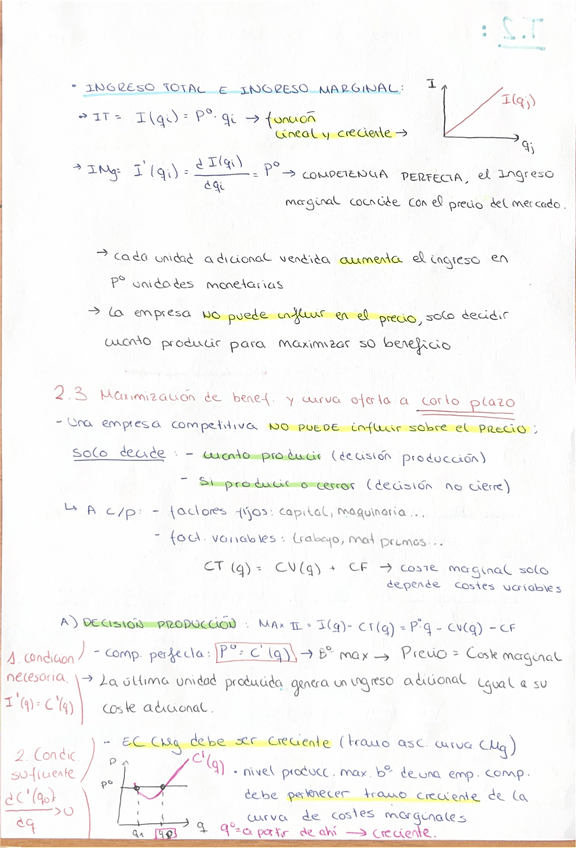 T.2 :
· INGRESO TOTAL E INGRESO MARGINAL:
→ IT = I(qi) = Pº · qi → función
lineal y creciente →
I
I(qj)
qj
→ IMg= I'(qi) = d I(qi) / dqi = Pº → COMPETENCIA PERFECTA, el Ingreso
marginal coincide con el precio del mercado.
→ cada unidad adicional vendida aumenta el ingreso en
Pº unidades monetarias
→ La empresa NO puede influir en el precio, solo decidir
cuanto producir para maximizar so beneficio
2.3 Maximización de benef. y curva oferta a corto plazo
- Una empresa competitiva NO PUEDE influir sobre el PRECIO;
SOLO decide: - cuanto producir (decisión producción)
- Si producir o cerrar (decisión no cierre)
↳ A c/p: - factores fijos: capital, maquinaria...
- fact. variables: trabajo, mat primas...
CT (q) = CV(q) + CF → coste marginal solo
depende costes variables
A) DECISIÓN PRODUCCIÓN: MAX Π = I(q) - CT(q) = Pº q - CV(q) - CF
1. condicion
necesaria.
I'(q) = C'(q)
- comp. perfecta: Pº = C'(q) → Bº max → Precio = Coste marginal
→ La última unidad producida genera un ingreso adicional igual a su
coste adicional.
2. Condic.
suficiente
dC'(qº) / dq >0
- EC CMg debe ser creciente (tramo asc. curva CMg)
P
Pº
C'(q)
q1
qº
q
· nivel producc. max. bº de una emp. comp.
debe pertenecer tramo creciente de la
curva de costes marginales
qº = a partir de ahí → creciente.